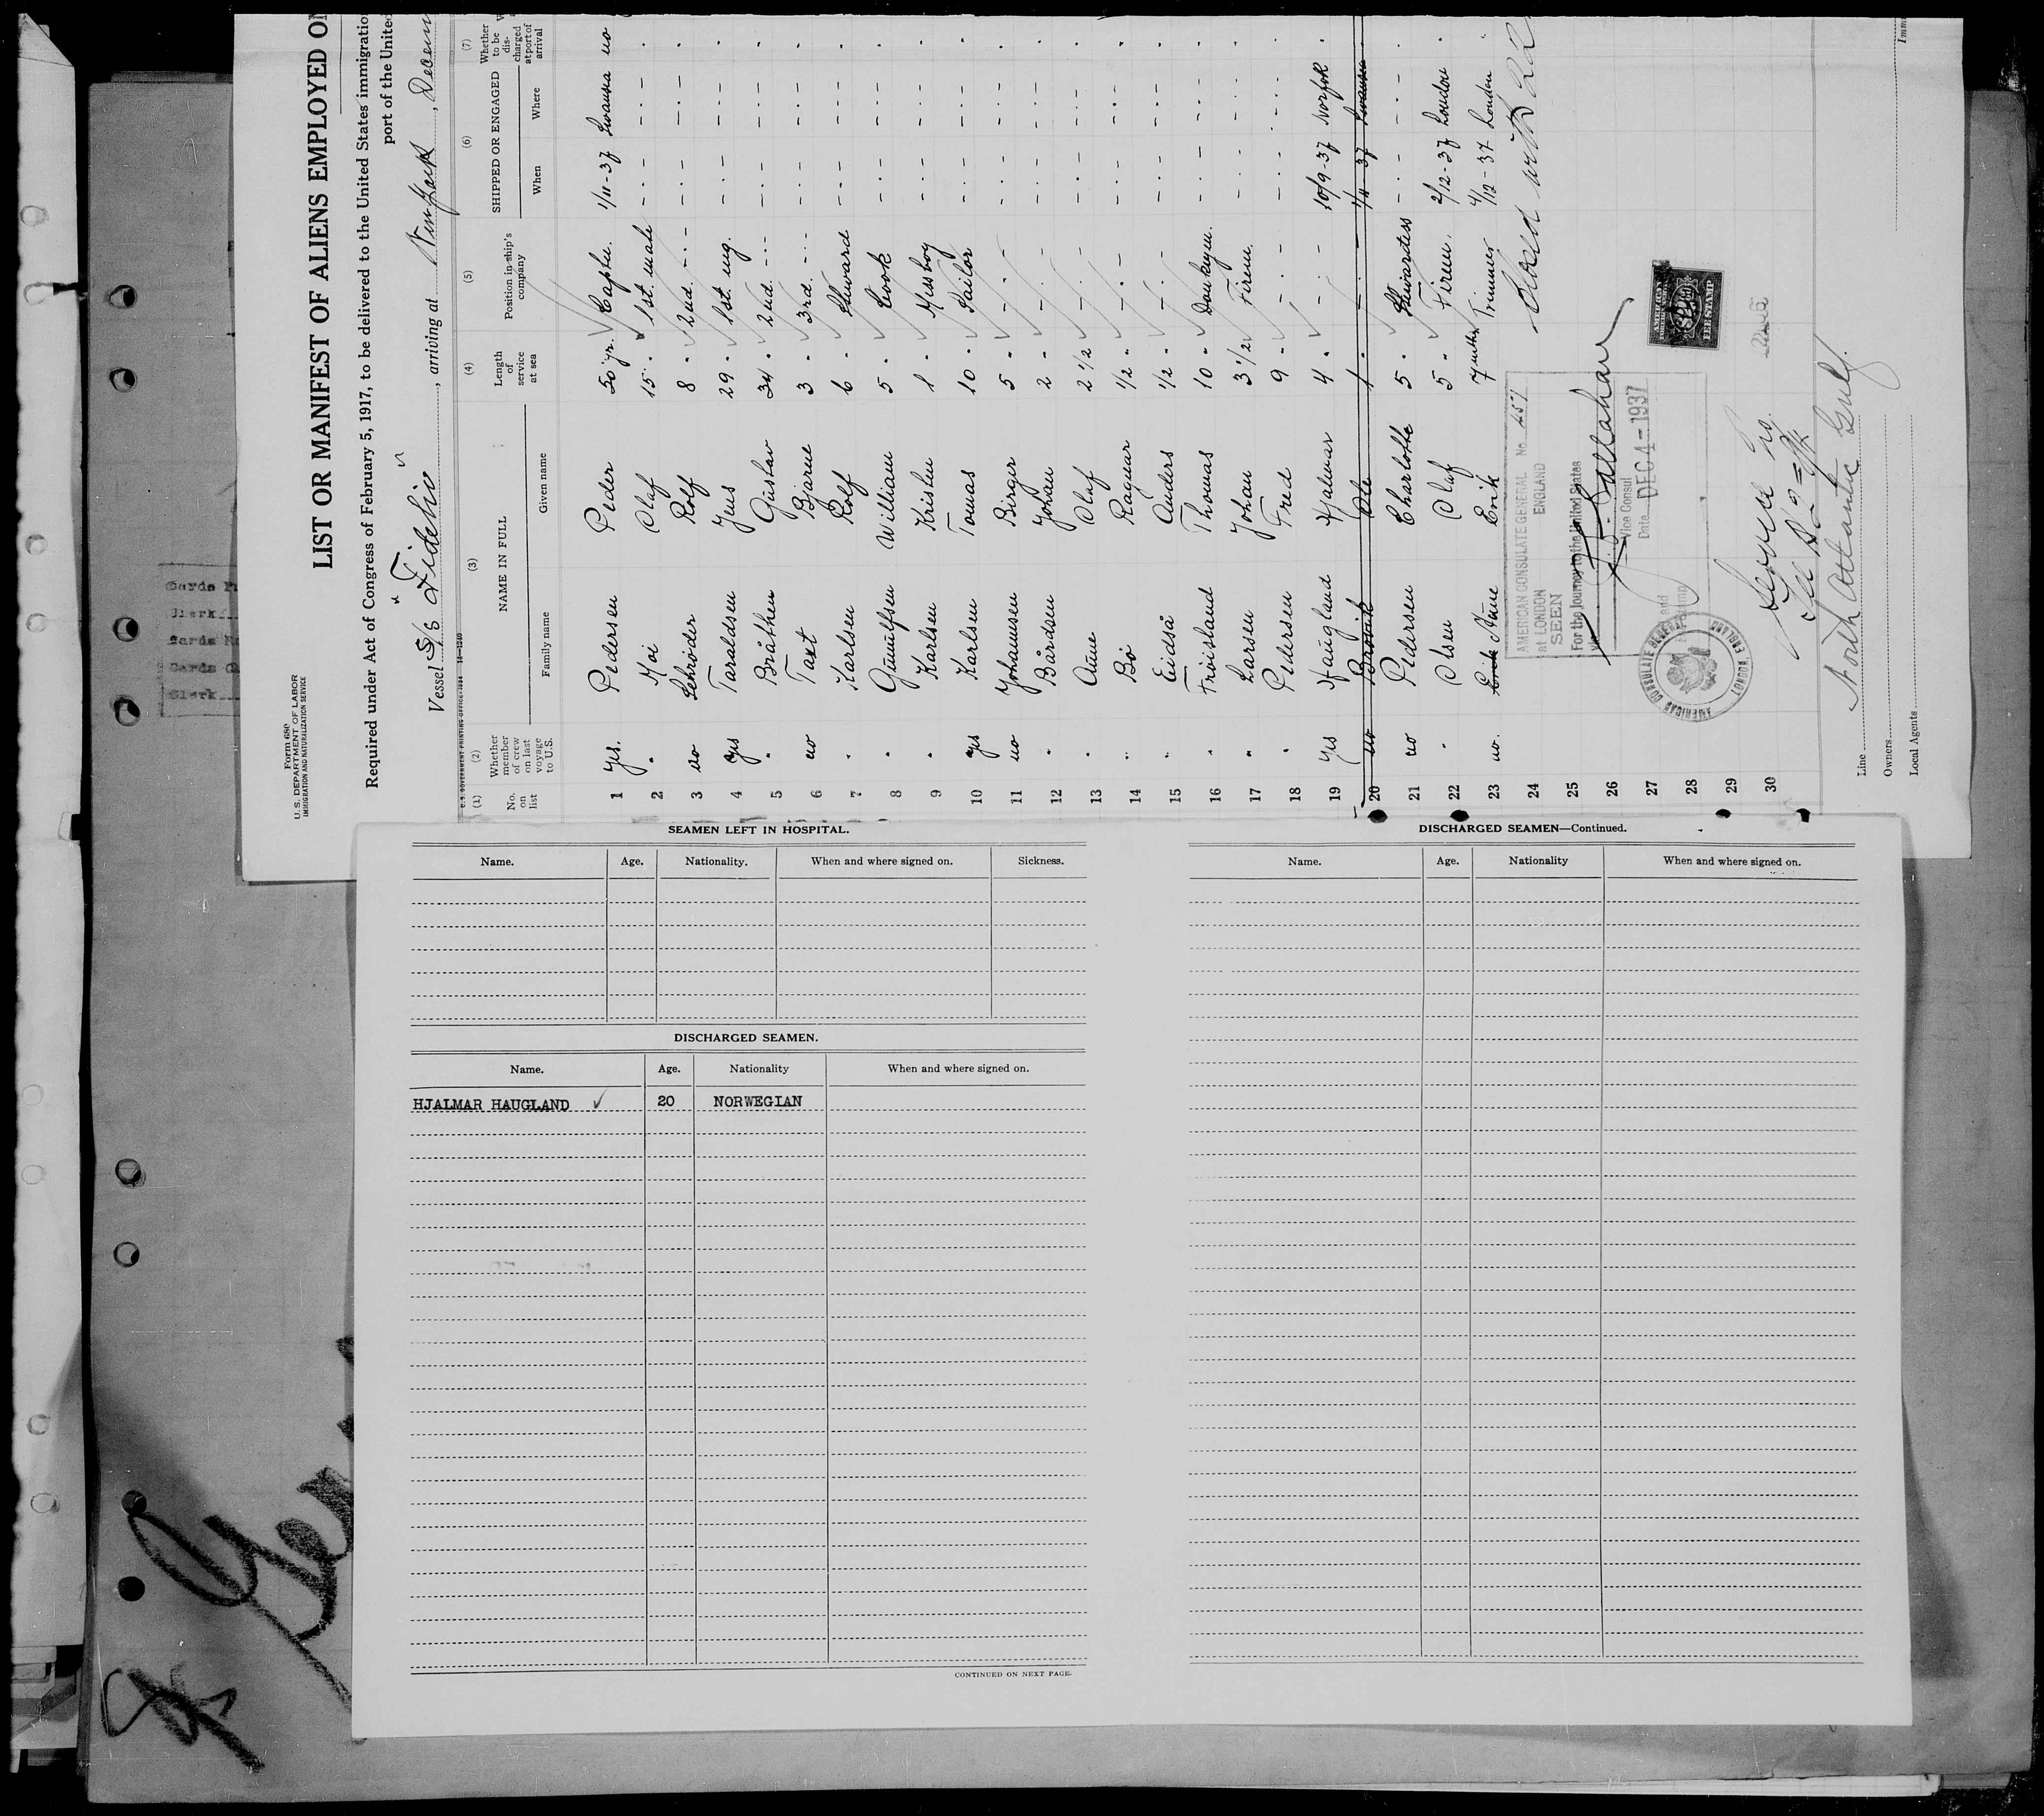 Form 680
U. S. DEPARTMENT OF LABOR
IMMIGRATION AND NATURALIZATION SERVICE
LIST OR MANIFEST OF ALIENS EMPLOYED ON
Required under Act of Congress of February 5, 1917, to be delivered to the United States immigration
port of the United
Vessel S/S "Fidelio", arriving at New York, Decem
U. S. GOVERNMENT PRINTING OFFICE
(1) (2) (3) (4) (5) (6) (7)
No. on list
Whether member of crew on last voyage to U.S.
NAME IN FULL
Family name Given name
Length of service at sea
Position in ship's company
SHIPPED OR ENGAGED
When Where
Whether to be discharged at port of arrival
1 yes. Pedersen Peder 50 yr. Captn. 1/11-37 Swansea no
2 " Moi Olaf 15 " 1st. mate - " - - " - "
3 no Schröder Rolf 8 " 2nd. - " - - " - - " - "
4 yes Taraldsen Jens 29 " 1st. eng. - " - - " - "
5 " Bråthen Gustav 34 " 2nd. - " - - " - - " - "
6 no Taxt Bjarne 3 " 3rd. - " - - " - - " - "
7 " Karlsen Rolf 6 " Steward - " - - " - "
8 " Gunulfsen William 5 " Cook - " - - " - "
9 " Karlsen Kristen 1 " Messboy - " - - " - "
10 yes Karlsen Tomas 10 " Sailor - " - - " - "
11 no Johannsen Birger 5 " - " - - " - - " - "
12 " Bårdsen Johan 2 " - " - - " - - " - "
13 " Aune Olaf 2 1/2 - " - - " - - " - "
14 " Bö Ragnar 1/2 " - " - - " - - " - "
15 " Eidså Anders 1/2 " - " - - " - - " - "
16 " Frivisland Thomas 10 " Donkeym. - " - - " - "
17 " Larsen Johan 3 1/2 Firem. - " - - " - "
18 " Pedersen Fred 9 " - " - - " - - " - "
19 yes Haugland Hjalmar 4 " - " - 10/9-37 Norfolk "
20 no Ole 1 " - " - 1/11-37 Swansea "
21 no Pedersen Charlotte 5 " Stewardess - " - - " - "
22 " Olsen Olaf 5 " Firem. 2/12-37 London "
23 no. Aune Erik 7 mths Trimmer 4/12-37 London "
24
25
26
27
28
29
30
AMERICAN CONSULATE GENERAL No 457
at LONDON ENGLAND
SEEN
For the Journey to the United States
Vice Consul
Date DEC 4 - 1937
AMERICAN CONSULATE GENERAL LONDON ENGLAND
AMERICAN
FEE STAMP
Closed with
Line North Atlantic Gulf.
Owners
Local Agents
SEAMEN LEFT IN HOSPITAL.
Name. Age. Nationality. When and where signed on. Sickness.
DISCHARGED SEAMEN.
Name. Age. Nationality When and where signed on.
HJALMAR HAUGLAND ✓ 20 NORWEGIAN
CONTINUED ON NEXT PAGE.
DISCHARGED SEAMEN—Continued.
Name. Age. Nationality When and where signed on.